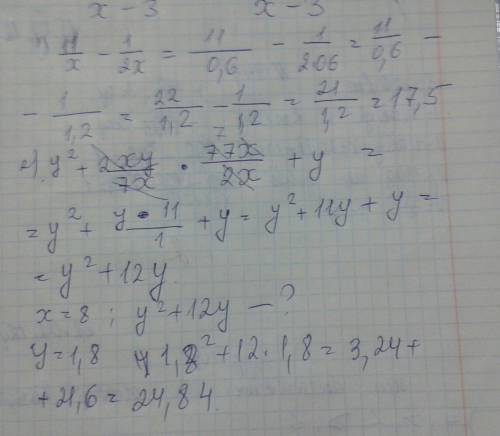 x - 3   x - 3
11/x - 1/2x = 11/0,6 - 1/2·0,6 = 11/0,6 -
- 1/1,2 = 22/1,2 - 1/1,2 = 21/1,2 = 17,5
y² + 2xy/7x · 77x/2x + y =
= y² + y·11/1 + y = y² + 11y + y =
= y² + 12y
x = 8 ; y² + 12y - ?
y = 1,8   1,8² + 12·1,8 = 3,24 +
+ 21,6 = 24,84